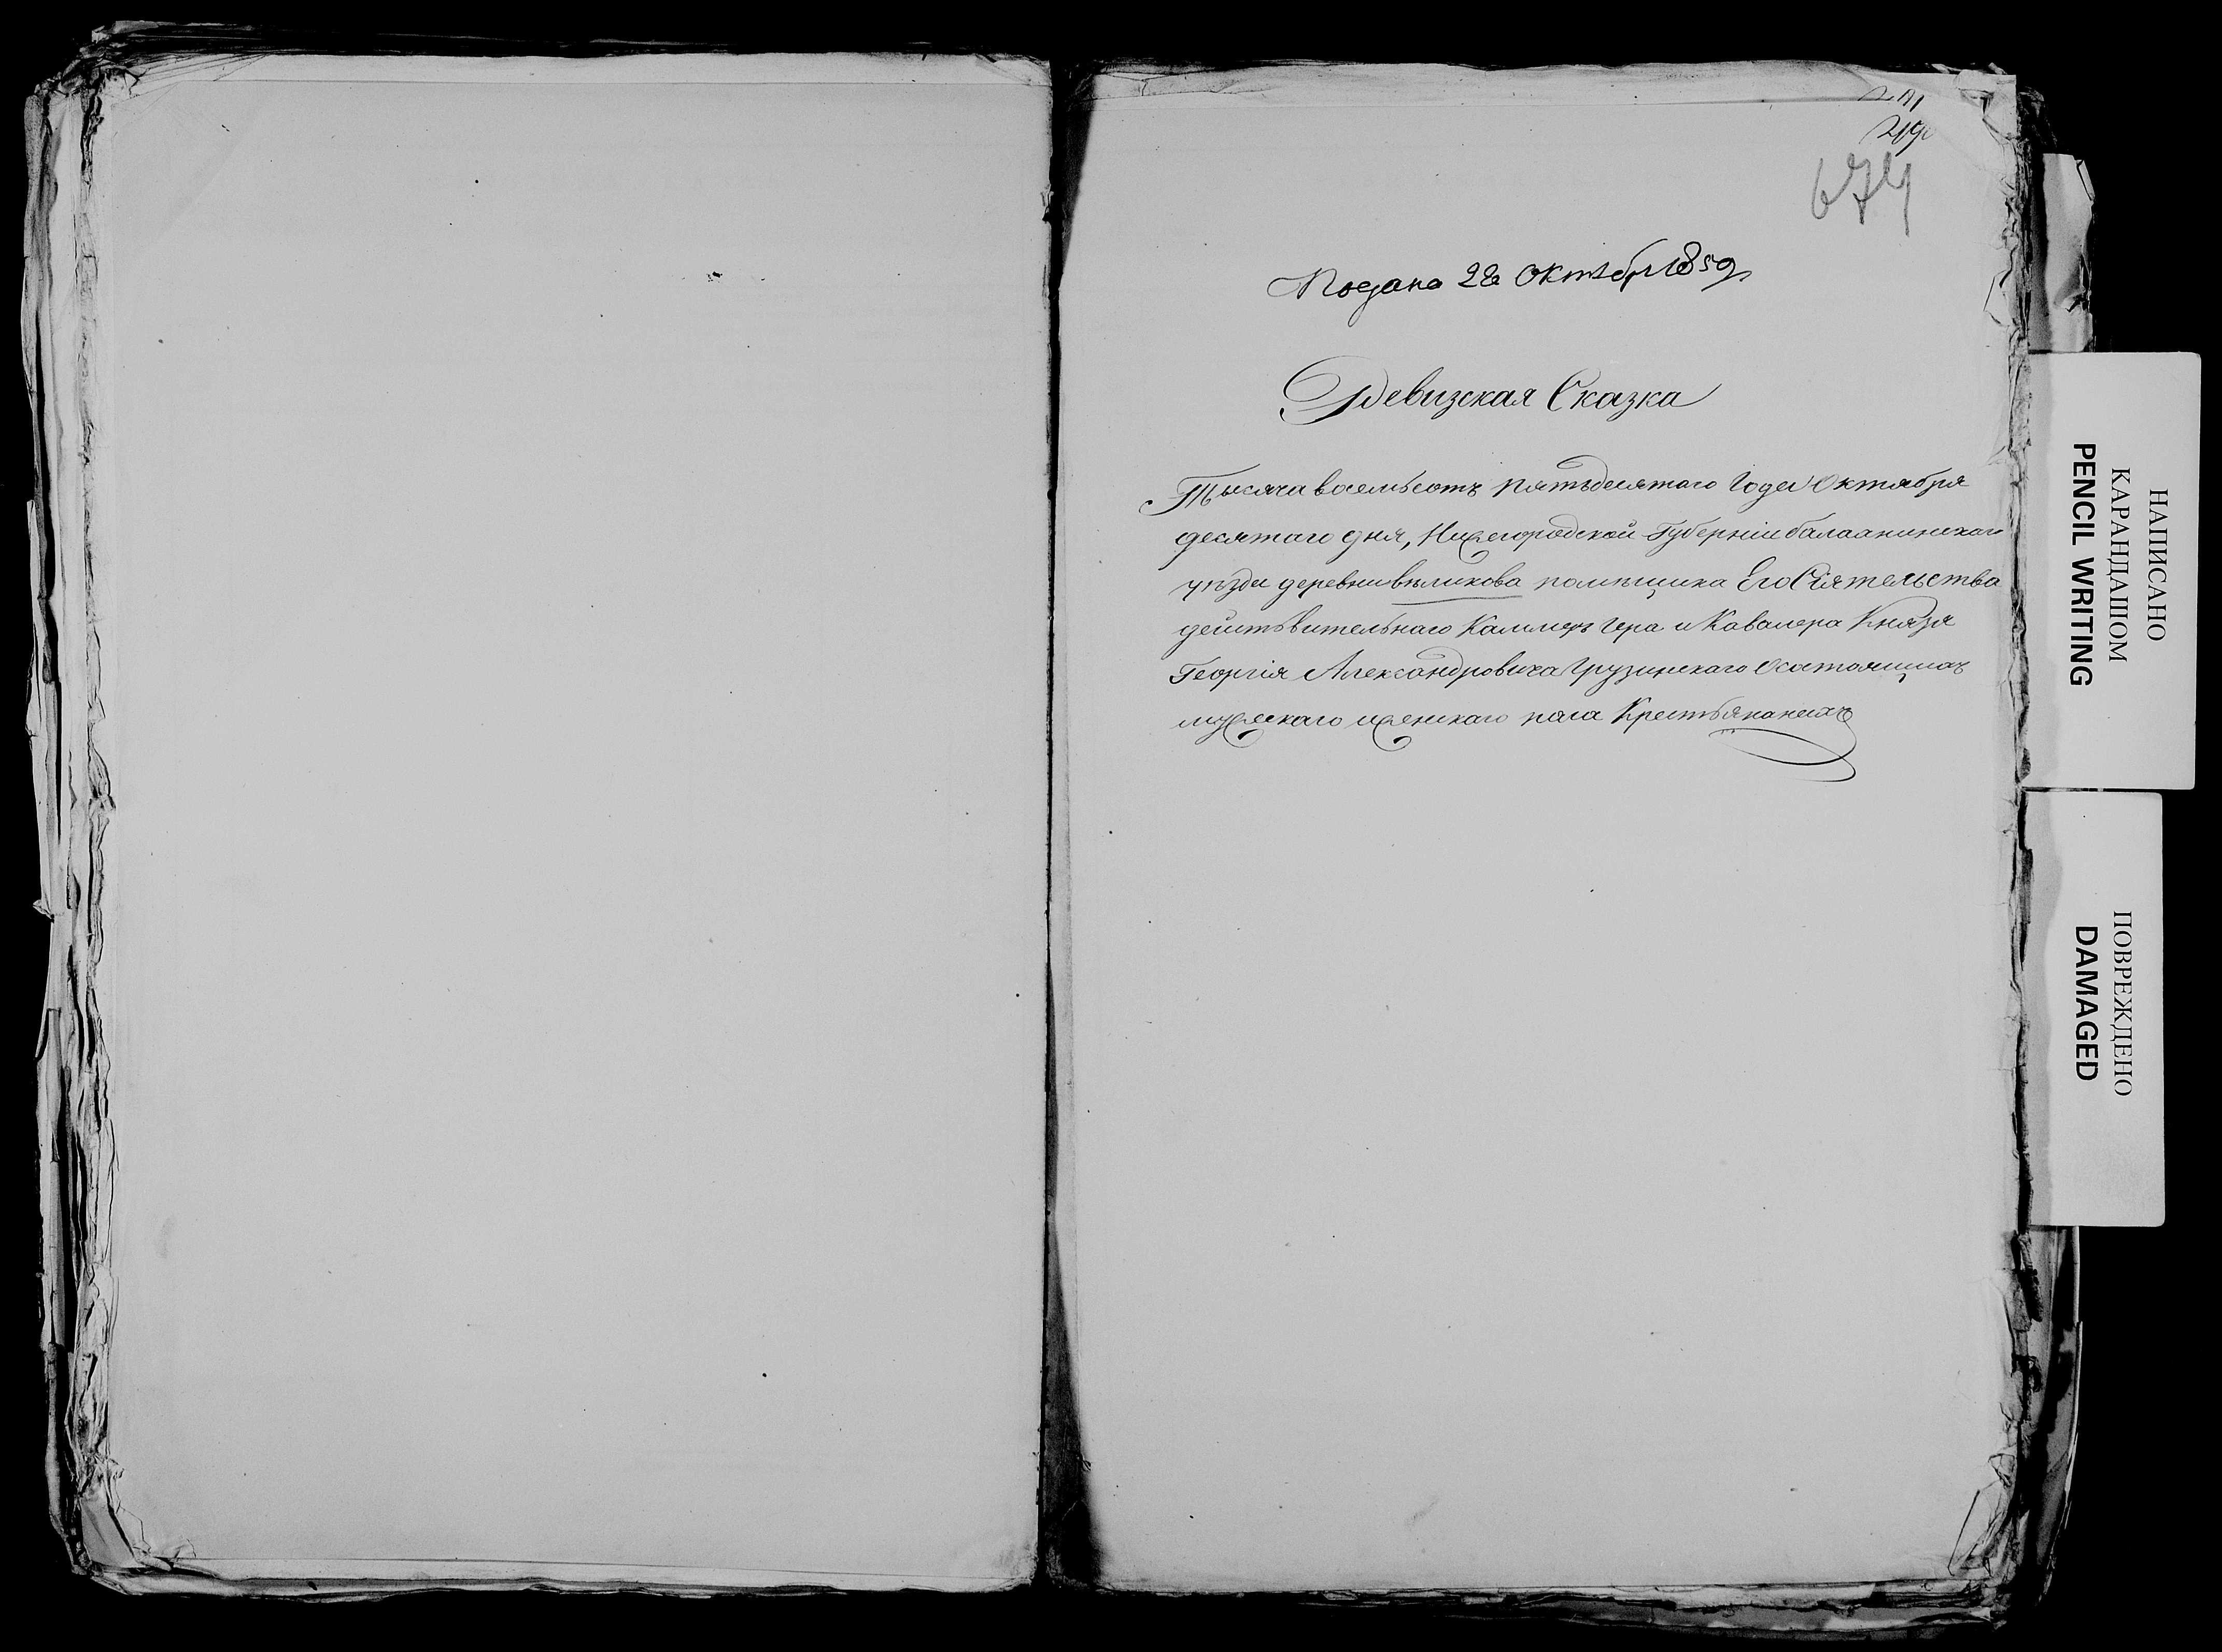 674
Подано 28 Октября 1850
Ревизская Сказка
Тысяча восемьсотъ пятьдесятаго Года Октября
десятаго дня, Нижегородской Губерніи балахнинскаго
уѣзда деревни вѣликова помѣщика Его Сіятельства
действительнаго Каммеръ Гера и Кавалера Князя
Георгія Александровича Грузинскаго Осостоящихъ
мужескаго иженскаго пола Крестьянахъ
НАПИСАНО
КАРАНДАШОМ
PENCIL WRITING
ПОВРЕЖДЕНО
DAMAGED